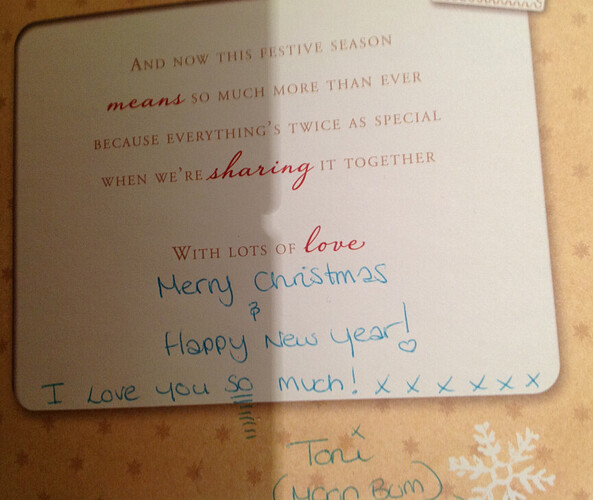 AND NOW THIS FESTIVE SEASON
means SO MUCH MORE THAN EVER
BECAUSE EVERYTHING'S TWICE AS SPECIAL
WHEN WE'RE sharing IT TOGETHER
WITH LOTS OF love
Merry Christmas
&
Happy New Year!
I Love you so much! x x x x x x
Toni x
(Moon Bum)